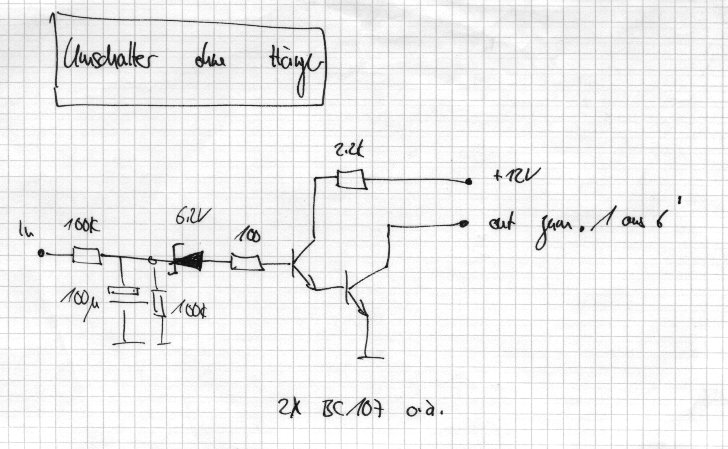 Umschalter ohne Hänger
2.2K
+12V
out gem. 1 aus 6'
In
100K
6.2V
100
100µ
100K
2x BC107 o.ä.